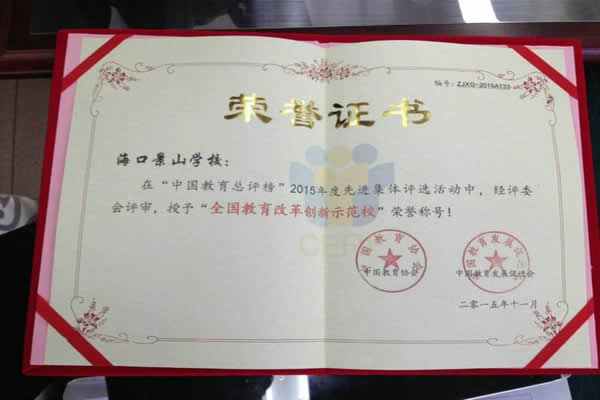 编号：ZJXG-2015A133
荣誉证书
海口景山学校：
在“中国教育总评榜”2015年度先进集体评选活动中，经评委
会评审，授予“全国教育改革创新示范校”荣誉称号！
中国教育协会
中国教育发展促进会
中国教育协会
中国教育发展促进会
二零一五年十一月